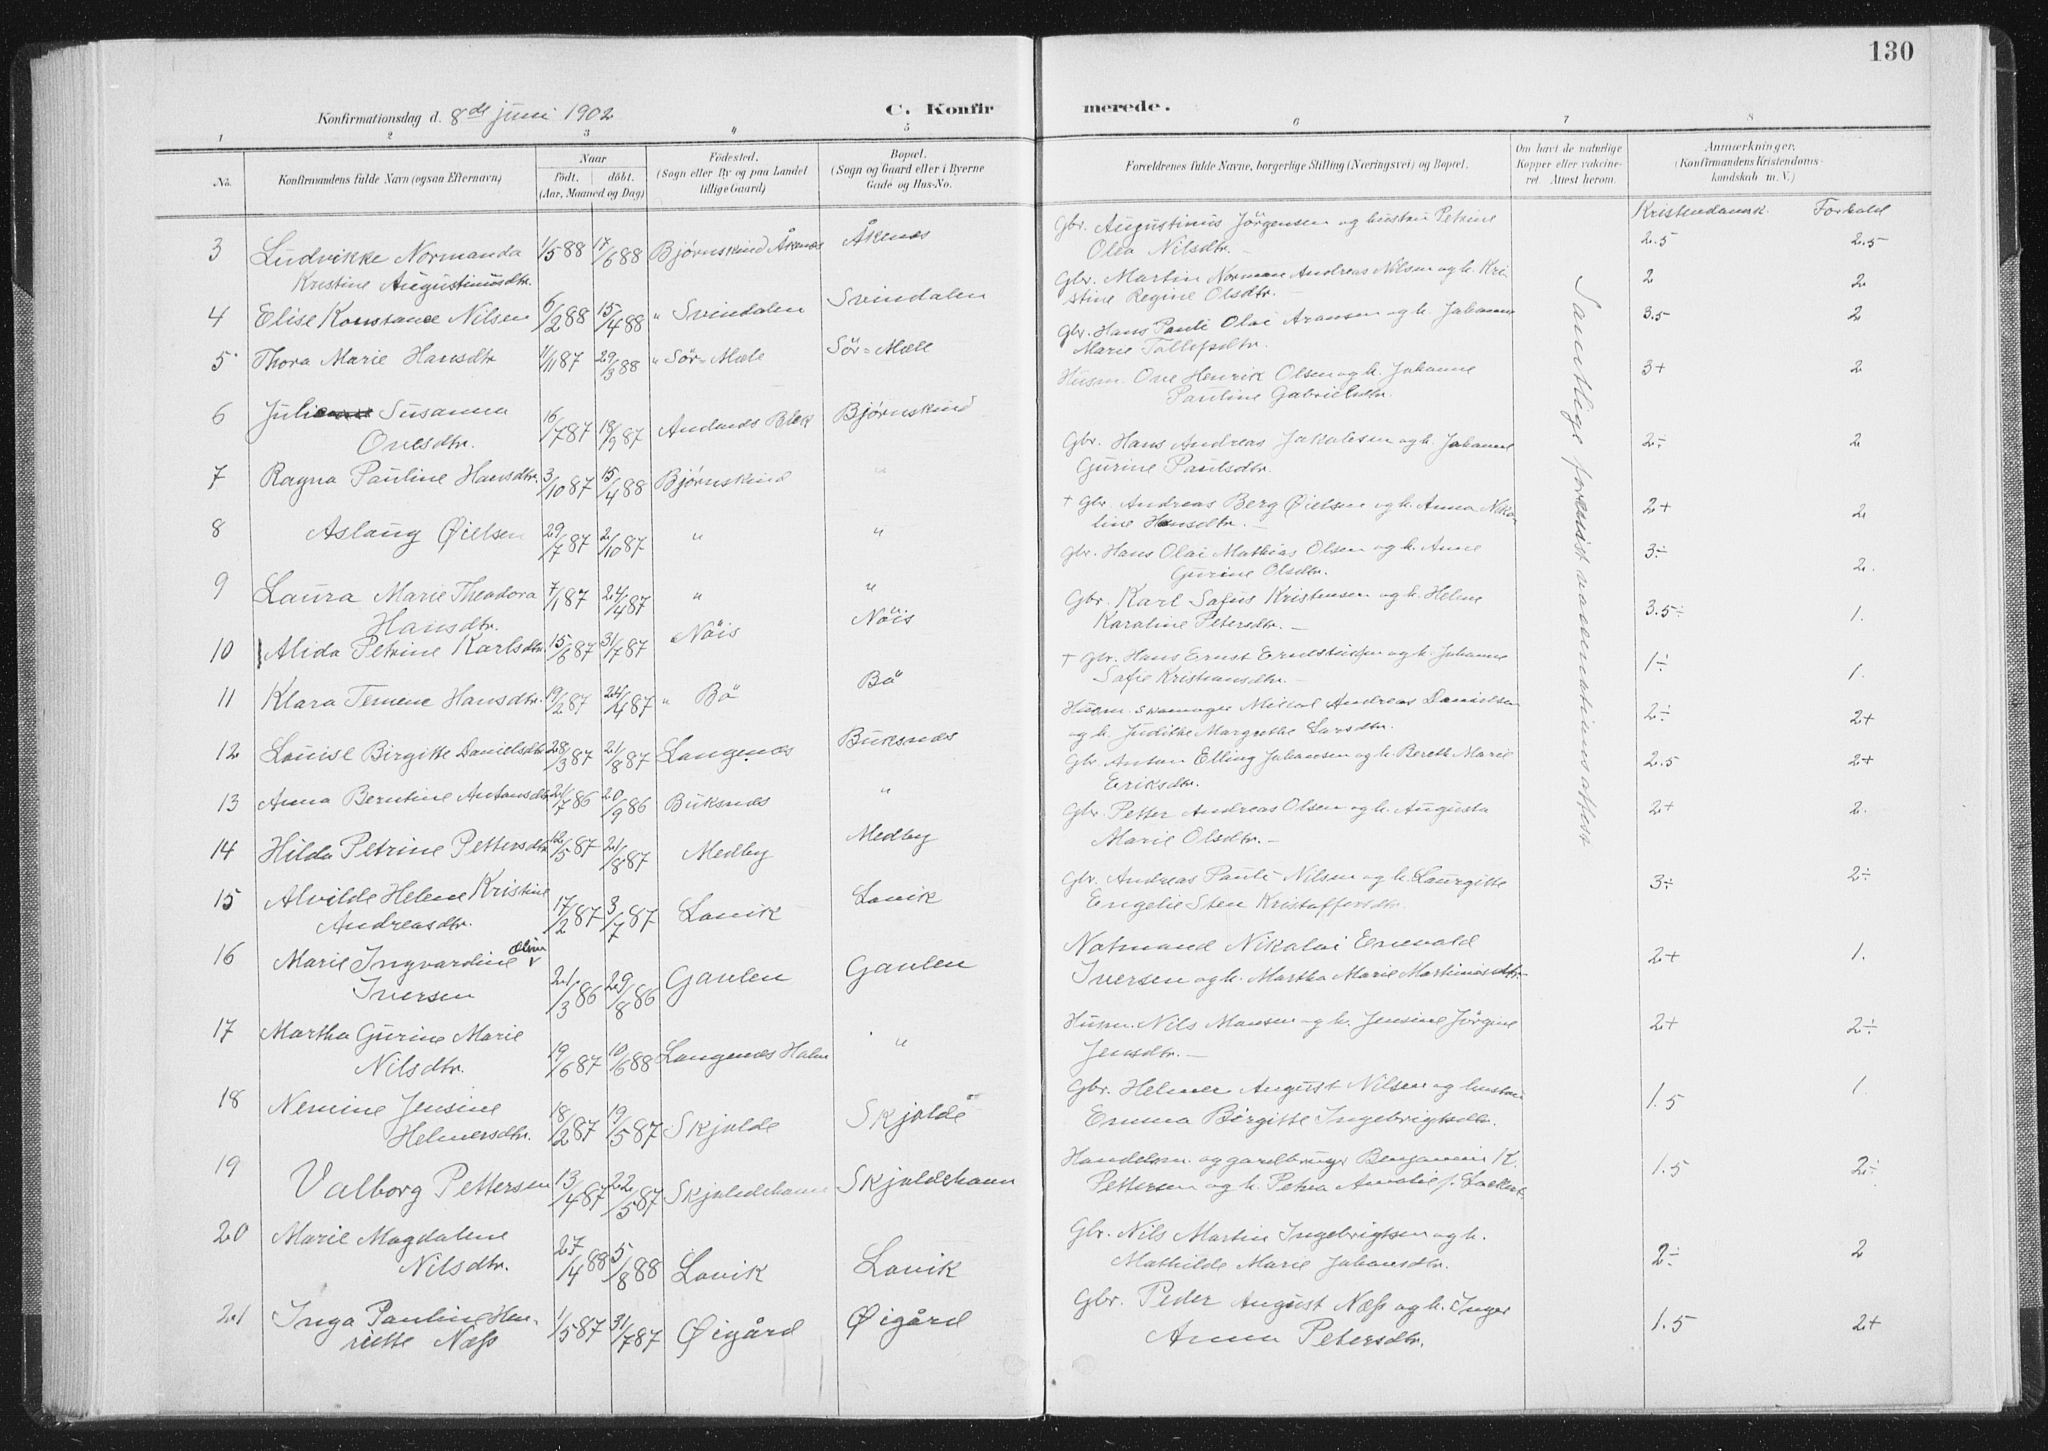 130
Konfirmationsdag d. 8de juni 1902
C. Konfirmerede.
1 2 3 4 5 6 7 8
No.
Konfirmandens fulde Navn (ogsaa Efternavn)
Naar
födt. döbt.
(Aar, Maaned og Dag)
Födested.
(Sogn eller By og paa Landet
tillige Gaard)
Bopæl.
(Sogn og Gaard eller i Byerne
Gade og Hus-No.
Forældrenes fulde Navne, borgerlige Stilling (Næringsvei) og Bopæl.
Om havt de naturlige
Kopper eller vakcineret. Attest herom.
Anmærkninger,
(Konfirmandens Kristendomskundskab m. V.)
Kristendomsk. Forhold
Samtlige forevist vaccinationsattest
3 Ludvikke Normanda 1/5 88 17/6 88 Bjørnskind Åkenæs Åkenæs Gbr. Augustinus Jörgensen og hustru Petrine 2.5 2.5
Kristine Augustinusdtr. Olea Nilsdtr. —
4 Elise Konstance Nilsen 6/2 88 15/4 88 " Svindalen Svindalen Gbr. Martin Norman Andreas Nilsen og h. Kri- 2 2
stine Regine Olsdtr. —
5 Thora Marie Hansdtr 1/11 87 29/3 88 " Sör-Mæle Sör-Mæle Gbr. Hans Pauli Olai Aronsen og h. Johanna 3.5 2
Marie Tollefsdtr.
6 Juli Susanna 16/7 87 18/9 87 Andenes Blek Bjørnskind Husm. Ove Henrik Olsen og h. Johanne 3+ 2
Ovesdtr. Pauline Gabrielsdtr.
7 Ragna Pauline Hansdtr. 3/10 87 15/4 88 Bjørnskind " Gbr. Hans Andreas Jakobsen og h. Johanne 2÷ 2
Gurine Paulsdtr.
8 Aslaug Øielsen 29/7 87 2/10 87 " " + Gbr. Andreas Berg Øielsen og h. Anna Niko- 2+ 2
line Hansdtr. —
9 Laura Marie Theodora 7/1 87 24/4 87 " " Gbr. Hans Olai Mathias Olsen og h. Anne 3÷ 2.
Hansdtr. Gurine Olsdtr.
10 Alida Petrine Karlsdtr 15/6 87 31/7 87 Nöis Nöis Gbr. Karl Sofus Kristensen og h. Helene 3.5÷ 1.
Karoline Petersdtr. —
11 Klara Temene Hansdtr. 19/2 87 24/4 87 " Bö Bö + Gbr. Hans Ernst Ernstsen og h. Johanne 1÷ 1.
Sofie Kristiansdtr. —
12 Louise Birgitte Danielsdtr 28/3 87 21/8 87 Langenæs Buksnæs Husm. skomager Mikal Andreas Danielsen 2÷ 2+
og h. Judithe Margrethe Larsdtr.
13 Anna Berntine Antonsdtr 21/7 86 20/9 86 Buksnæs " Gbr. Anton Elling Johansen og h. Bereth Marie 2.5 2+
Eriksdtr.
14 Hilda Petrine Pettersdtr 12/5 87 21/8 87 Medby Medby Gbr. Petter Andreas Olsen og h. Augusta 2+ 2.
Marie Olsdtr. —
15 Alvilde Helene Kristine 17/2 87 3/7 87 Lovik Lovik Gbr. Andreas Pauli Nilsen og h. Laurgitte 3÷ 2÷
Andreasdtr. Engelie Sten Kristoffersdtr.
16 Marie Ingvardine Oline 21/3 86 29/8 86 Gavlen Gavlen Notmand Nikolai Enevold 2+ 1.
Iversen Iversen og h. Martha Marie Martinusdtr.
17 Martha Gurine Marie 19/6 87 10/6 88 Langenæs Holm " Husm. Nils Monsen og h. Jensine Jörgine 2+ 2÷
Nilsdtr. Jensdtr. —
18 Nemine Jensine 18/2 87 19/5 87 Skjolde Skjolde Gbr. Helmer August Nilsen og hustru 1.5 1.
Helmersdtr. Emma Birgitte Ingebrigtsdtr.
19 Valborg Pettersen 13/4 87 22/5 87 Skjoldehavn Skjoldehavn Handelsm. og gardbruger Benjamin K. 1.5 2÷
Pettersen og h. Petra Amalie f. Lockert
20 Marie Magdalene 27/4 88 5/8 88 Lovik Lovik Gbr. Nils Martin Ingebrigtsen og h. 2÷ 2
Nilsdtr. Mathilde Marie Johansdtr.
21 Inga Pauline Hen- 1/5 87 31/7 87 Øigård Øigård Gbr. Peder August Næss og h. Inger 1.5 2+
riette Næss Anna Petersdtr.